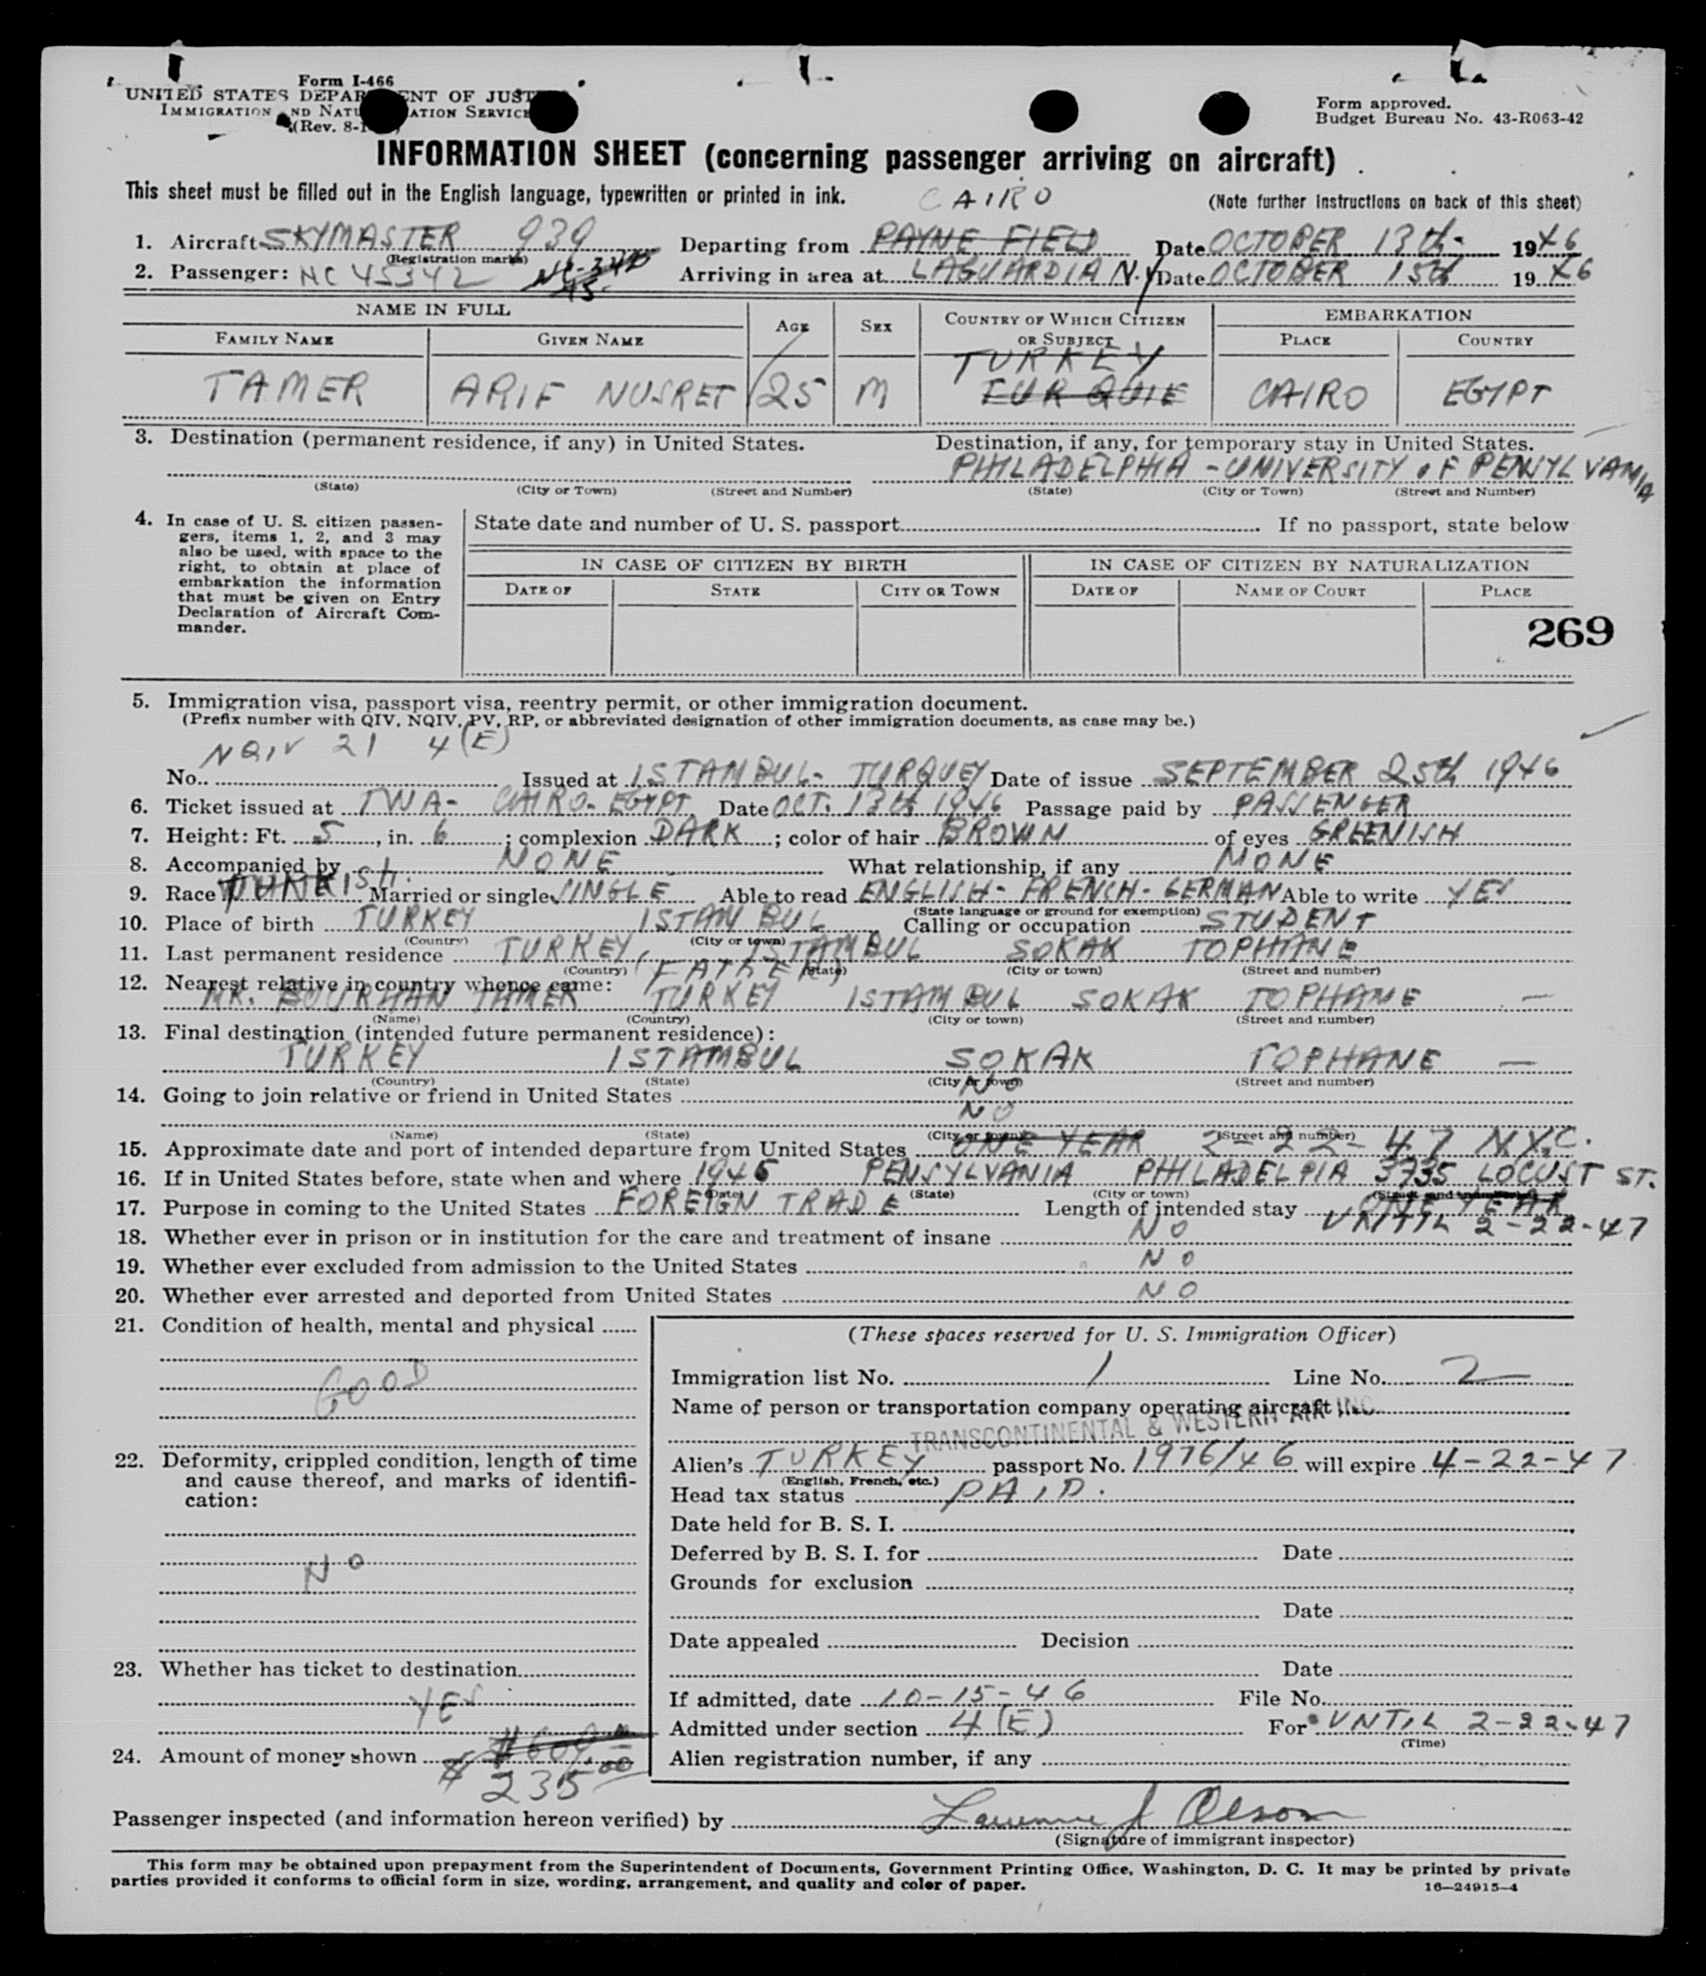 Form I-466
UNITED STATES DEPARTMENT OF JUSTICE
IMMIGRATION AND NATURALIZATION SERVICE
(Rev. 8-1
Form approved.
Budget Bureau No. 43-R063-42
INFORMATION SHEET (concerning passenger arriving on aircraft)
This sheet must be filled out in the English language, typewritten or printed in ink.
CAIRO
(Note further instructions on back of this sheet)
1. Aircraft SKYMASTER 939 Departing from PAYNE FIELD Date OCTOBER 13th 1946
(Registration marks)
2. Passenger: NC 45342 Arriving in area at LAGUARDIA N.Y Date OCTOBER 15th 1946
NAME IN FULL AGE SEX COUNTRY OF WHICH CITIZEN OR SUBJECT EMBARKATION
FAMILY NAME GIVEN NAME PLACE COUNTRY
TURKEY
TAMER ARIF NUSRET 25 M TURQUIE CAIRO EGYPT
3. Destination (permanent residence, if any) in United States. Destination, if any, for temporary stay in United States.
PHILADELPHIA - UNIVERSITY OF PENSYLVAMIA
(State) (City or Town) (Street and Number) (State) (City or Town) (Street and Number)
4. In case of U. S. citizen passen-
gers, items 1, 2, and 3 may
also be used, with space to the
right, to obtain at place of
embarkation the information
that must be given on Entry
Declaration of Aircraft Com-
mander.
State date and number of U. S. passport If no passport, state below
IN CASE OF CITIZEN BY BIRTH IN CASE OF CITIZEN BY NATURALIZATION
DATE OF STATE CITY OR TOWN DATE OF NAME OF COURT PLACE
269
5. Immigration visa, passport visa, reentry permit, or other immigration document.
(Prefix number with QIV, NQIV, PV, RP, or abbreviated designation of other immigration documents, as case may be.)
NQIV 21 4(E)
No. Issued at ISTAMBUL- TURQUEY Date of issue SEPTEMBER 25th 1946
6. Ticket issued at TWA- CAIRO- EGYPT Date OCT. 13th 1946 Passage paid by PASSENGER
7. Height: Ft. 5, in. 6; complexion DARK; color of hair BROWN of eyes GREENISH
8. Accompanied by NONE What relationship, if any NONE
9. Race TURKISH. Married or single SINGLE Able to read ENGLISH- FRENCH- GERMAN Able to write YES
(State language or ground for exemption)
10. Place of birth TURKEY ISTAMBUL Calling or occupation STUDENT
(Country) (City or town)
11. Last permanent residence TURKEY, ISTAMBUL SOKAK TOPHANE
(Country) (State) (City or town) (Street and number)
12. Nearest relative in country whence came: FATHER
MR. BOURHAN TAMER TURKEY ISTAMBUL SOKAK TOPHANE —
(Name) (Country) (City or town) (Street and number)
13. Final destination (intended future permanent residence):
TURKEY ISTAMBUL SOKAK TOPHANE —
(Country) (State) (City or town) (Street and number)
14. Going to join relative or friend in United States NO
NO
(Name) (State) (City or town) (Street and number)
15. Approximate date and port of intended departure from United States ONE YEAR 2-22-47 N.Y.C.
16. If in United States before, state when and where 1946 PENSYLVANIA PHILADELPIA 3735 LOCUST ST.
(Date) (State) (City or town) (Street and number)
17. Purpose in coming to the United States FOREIGN TRADE Length of intended stay ONE YEAR
UNTIL 2-22-47
18. Whether ever in prison or in institution for the care and treatment of insane NO
19. Whether ever excluded from admission to the United States NO
20. Whether ever arrested and deported from United States NO
21. Condition of health, mental and physical
GOOD
22. Deformity, crippled condition, length of time
and cause thereof, and marks of identifi-
cation:
NO
23. Whether has ticket to destination
YES
24. Amount of money shown
$ 235.00
(These spaces reserved for U. S. Immigration Officer)
Immigration list No. 1 Line No. 2
Name of person or transportation company operating aircraft
TRANSCONTINENTAL & WESTERN AIR INC.
Alien's TURKEY passport No. 1976/46 will expire 4-22-47
(English, French, etc.)
Head tax status PAID.
Date held for B. S. I.
Deferred by B. S. I. for Date
Grounds for exclusion
Date
Date appealed Decision
Date
If admitted, date 10-15-46 File No.
Admitted under section 4(E) For UNTIL 2-22-47
(Time)
Alien registration number, if any
Passenger inspected (and information hereon verified) by Lawrence J Olson
(Signature of immigrant inspector)
This form may be obtained upon prepayment from the Superintendent of Documents, Government Printing Office, Washington, D. C. It may be printed by private
parties provided it conforms to official form in size, wording, arrangement, and quality and color of paper.
16—24915-4